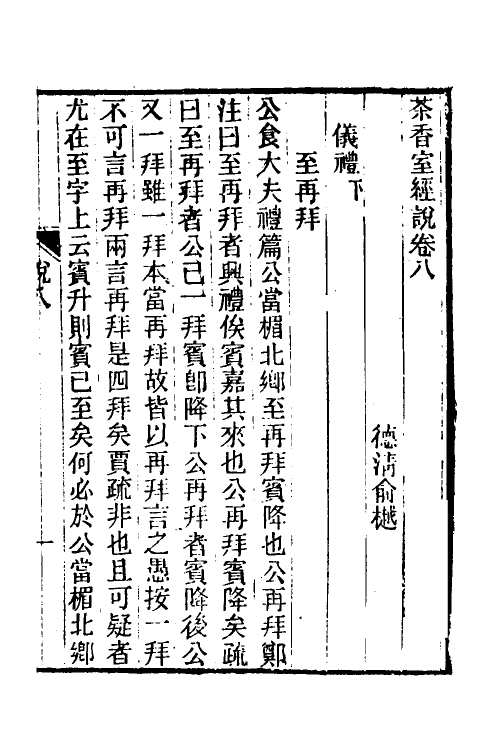 茶香室經說卷八
德清俞樾
儀禮下
至再拜
公食大夫禮篇公當楣北鄉至再拜賓降也公再拜鄭
注曰至再拜者興禮俟賓嘉其來也公再拜賓降矣疏
曰至再拜者公已一拜賓卽降下公再拜者賓降後公
又一拜雖一拜本當再拜故皆以再拜言之愚按一拜
不可言再拜兩言再拜是四拜矣賈疏非也且可疑者
尤在至字上云賓升則賓已至矣何必於公當楣北鄉
說八
一